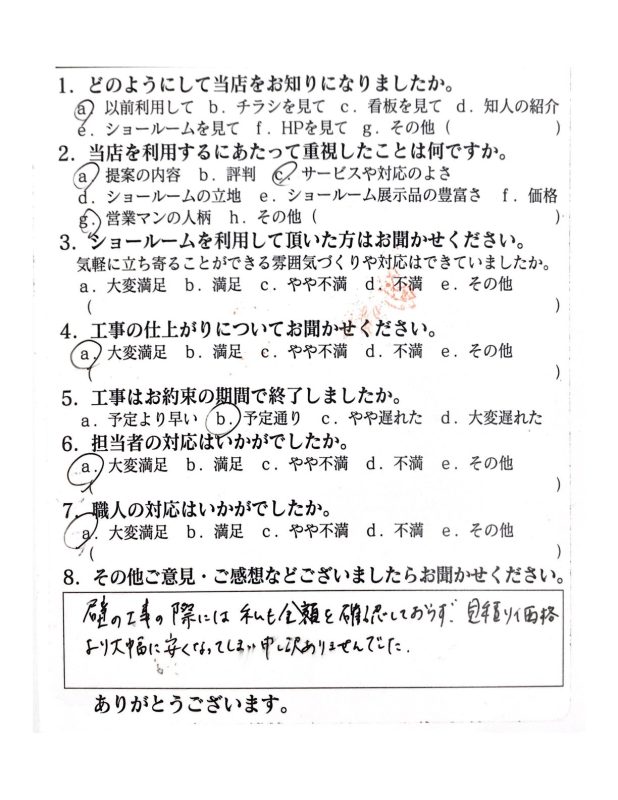 1. どのようにして当店をお知りになりましたか。
a. 以前利用して b. チラシを見て c. 看板を見て d. 知人の紹介
e. ショールームを見て f. HPを見て g. その他 ( )
2. 当店を利用するにあたって重視したことは何ですか。
a. 提案の内容 b. 評判 c. サービスや対応のよさ
d. ショールームの立地 e. ショールーム展示品の豊富さ f. 価格
g. 営業マンの人柄 h. その他 ( )
3. ショールームを利用して頂いた方はお聞かせください。
気軽に立ち寄ることができる雰囲気づくりや対応はできていましたか。
a. 大変満足 b. 満足 c. やや不満 d. 不満 e. その他
( )
4. 工事の仕上がりについてお聞かせください。
a. 大変満足 b. 満足 c. やや不満 d. 不満 e. その他
( )
5. 工事はお約束の期間で終了しましたか。
a. 予定より早い b. 予定通り c. やや遅れた d. 大変遅れた
6. 担当者の対応はいかがでしたか。
a. 大変満足 b. 満足 c. やや不満 d. 不満 e. その他
( )
7. 職人の対応はいかがでしたか。
a. 大変満足 b. 満足 c. やや不満 d. 不満 e. その他
( )
8. その他ご意見・ご感想などございましたらお聞かせください。
壁の工事の際には私も金額を確認しておらず、見積り価格
より大幅に安くなってしまい申し訳ありませんでした.
ありがとうございます。